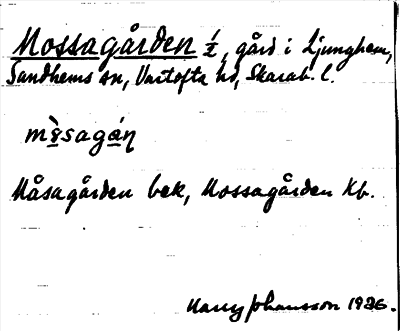 Mossagården 1/2, gård i Ljunghem,
Sandhems sn, Vartofta hd, Skarab. l.
Måsagården bek, Mossagården Kb.
Harry Johansson 1926.